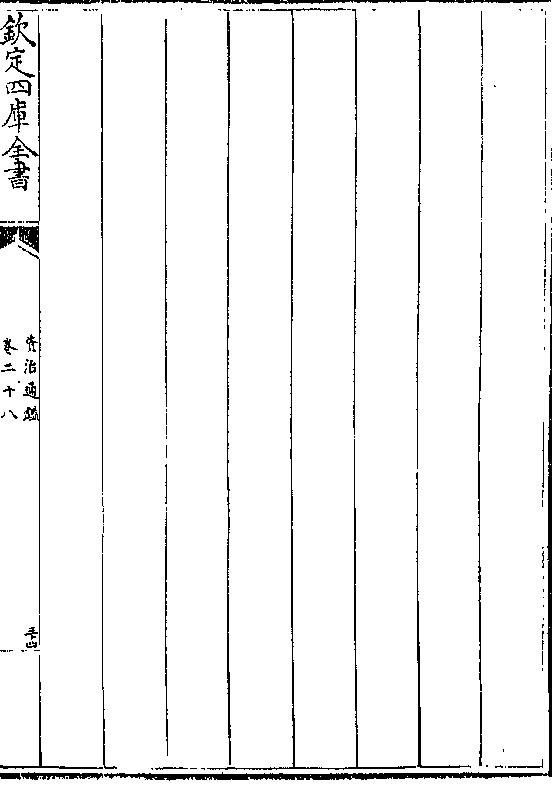 欽定四庫全書
資治通鑑
卷二十八
三十四